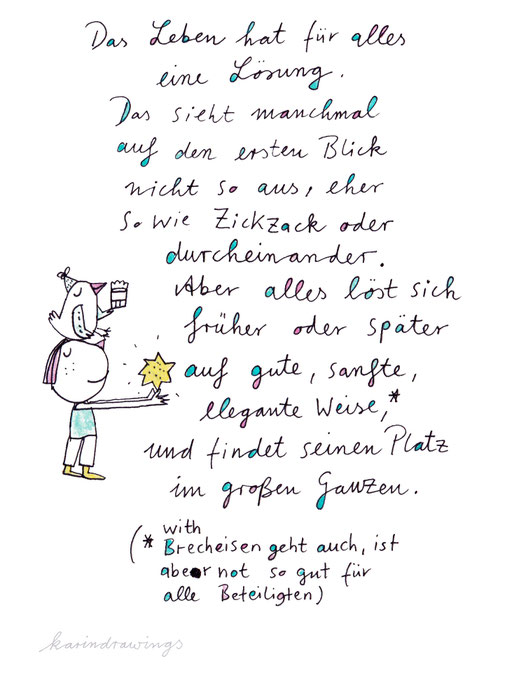 Das Leben hat für alles
eine Lösung.
Das sieht manchmal
auf den ersten Blick
nicht so aus, eher
so wie Zickzack oder
durcheinander.
Aber alles löst sich
früher oder später
auf gute, sanfte,
elegante Weise,*
und findet seinen Platz
im großen Ganzen.
(* with
Brecheisen geht auch, ist
aber not so gut für
alle Beteiligten)
karindrawings